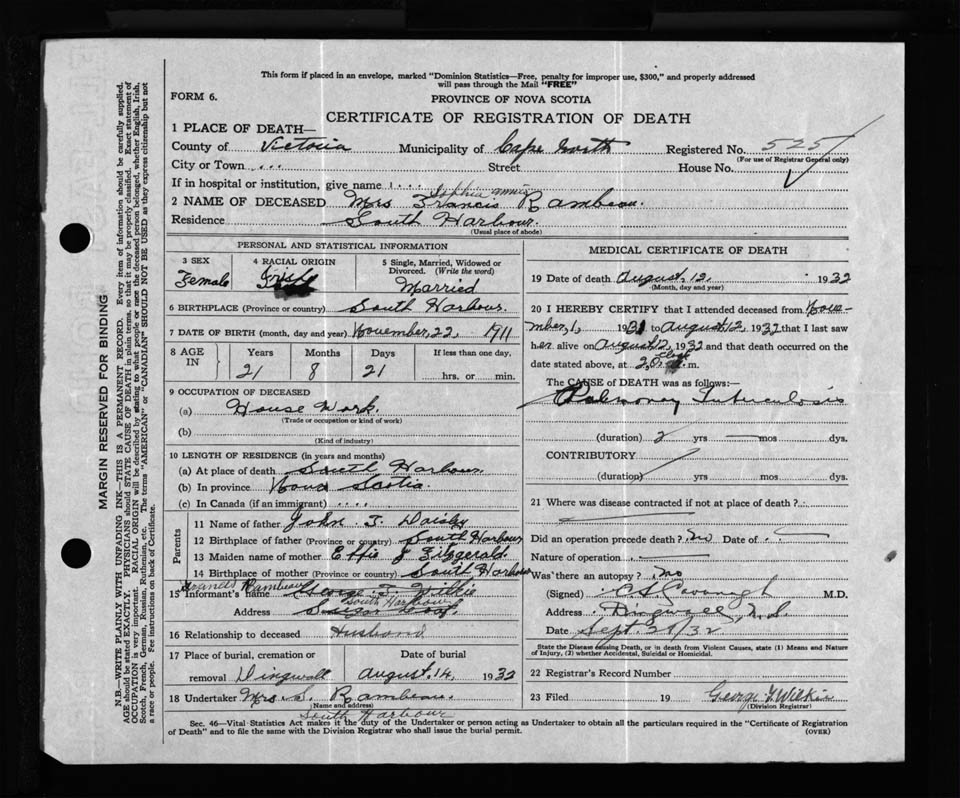 This form if placed in an envelope, marked "Dominion Statistics—Free, penalty for improper use, $300," and properly addressed
will pass through the Mail "FREE"
FORM 6.
PROVINCE OF NOVA SCOTIA
CERTIFICATE OF REGISTRATION OF DEATH
1 PLACE OF DEATH—
County of Victoria Municipality of Cape North Registered No. 525
(For use of Registrar General only)
City or Town ... Street House No.
If in hospital or institution, give name
Sophia Annie
2 NAME OF DECEASED Mrs Francis Rambeau.
Residence South Harbour.
(Usual place of abode)
PERSONAL AND STATISTICAL INFORMATION
3 SEX 4 RACIAL ORIGIN 5 Single, Married, Widowed or Divorced. (Write the word)
Female Irish Married
6 BIRTHPLACE (Province or country) South Harbour.
7 DATE OF BIRTH (month, day and year) November, 22, 1911
8 AGE IN Years Months Days If less than one day,
21 8 21 hrs. or min.
9 OCCUPATION OF DECEASED
(a) House Work.
(Trade or occupation or kind of work)
(b)
(Kind of industry)
10 LENGTH OF RESIDENCE (in years and months)
(a) At place of death South Harbour.
(b) In province Nova Scotia.
(c) In Canada (if an immigrant) ....
Parents
11 Name of father John J. Daisley
12 Birthplace of father (Province or country) South Harbour
13 Maiden name of mother Effie J Fitzgerald
14 Birthplace of mother (Province or country) South Harbour
Francis Rambeau
15 Informant's name George F. Wilkie
South Harbour
Address Sugar Loaf.
16 Relationship to deceased Husband
17 Place of burial, cremation or removal Date of burial
Dingwall August, 14, 1932
18 Undertaker Mrs S. Rambeau.
(Name and address)
South Harbour
MEDICAL CERTIFICATE OF DEATH
19 Date of death August, 12, 1932
(Month, day and year)
20 I HEREBY CERTIFY that I attended deceased from Nove-
mber, 1, 1931 to August 12, 1932 that I last saw
her alive on August 12, 1932 and that death occurred on the
date stated above, at 2, o clock .m.
The CAUSE of DEATH was as follows:—
Pulmonary Tuberculosis
(duration) 2 yrs — mos dys.
CONTRIBUTORY
(duration) yrs mos dys.
21 Where was disease contracted if not at place of death?
Did an operation precede death? no Date of
Nature of operation
Was there an autopsy? no
(Signed) C S Cavanagh M.D.
Address Dingwall, N.S.
Date Sept. 20/32
State the Disease causing Death, or in death from Violent Causes, state (1) Means and Nature
of Injury, (2) whether Accidental, Suicidal or Homicidal.
22 Registrar's Record Number
23 Filed 19 George F. Wilkie
(Division Registrar)
Sec. 46—Vital Statistics Act makes it the duty of the Undertaker or person acting as Undertaker to obtain all the particulars required in the "Certificate of Registration
of Death" and to file the same with the Division Registrar who shall issue the burial permit.
(OVER)
MARGIN RESERVED FOR BINDING
N.B.—WRITE PLAINLY WITH UNFADING INK—THIS IS A PERMANENT RECORD. Every item of information should be carefully supplied.
AGE should be stated EXACTLY. PHYSICIANS should STATE CAUSE OF DEATH in plain terms, so that it may be properly classified. Exact statement of
OCCUPATION is very important. RACIAL ORIGIN will be described by stating to what people or race the deceased person belonged, whether English, Irish,
Scotch, French, German, Russian, Ruthenian, etc. The terms "AMERICAN" or "CANADIAN" SHOULD NOT BE USED as they express citizenship but not
a race or people. Fee instructions on back of Certificate.